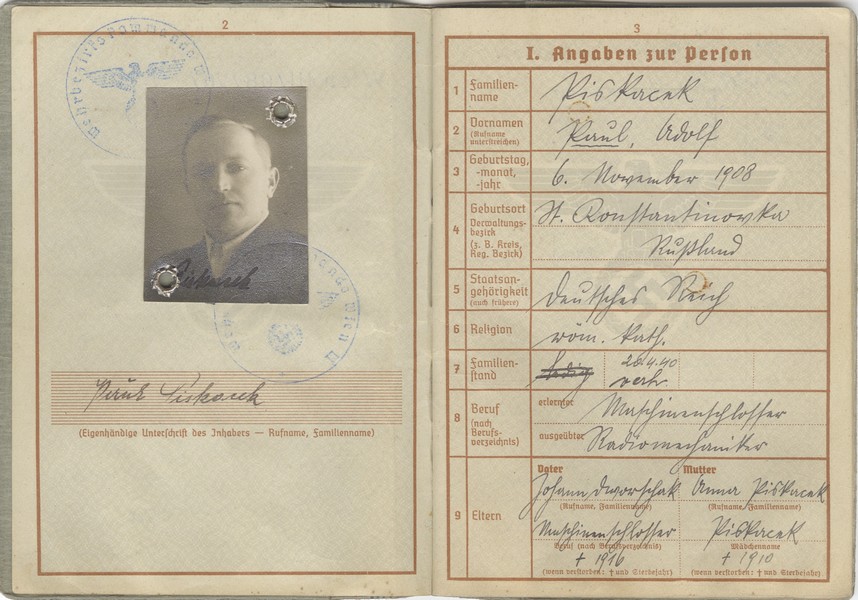 2
Wehrbezirkskommando W
Wehrbezirkskommando Wien
Paul Piskacek
(Eigenhändige Unterschrift des Inhabers — Rufname, Familienname)
3
I. Angaben zur Person
1 Familien-
name
Piskacek
2 Vornamen
(Rufname
unterstreichen)
Paul, Adolf
3 Geburtstag,
-monat,
-jahr
6. November 1908
4 Geburtsort
Verwaltungs-
bezirk
(z. B. Kreis,
Reg. Bezirk)
St. Konstantinowka
Rußland
5 Staatsan-
gehörigkeit
(auch frühere)
Deutsches Reich
6 Religion
röm. kath.
7 Familien-
stand
ledig
28.4.40
verh
8 Beruf
(nach
Berufs-
verzeichnis)
erlernter Maschinenschlosser
ausgeübter Radiomechaniker
9 Eltern
Vater Mutter
Johann Dworschak Anna Piskacek
(Rufname, Familienname) (Rufname, Familienname)
Maschinenschlosser Piskacek
Beruf (nach Berufsverzeichnis) Mädchenname
† 1916 † 1910
(wenn verstorben: † und Sterbejahr) (wenn verstorben: † und Sterbejahr)